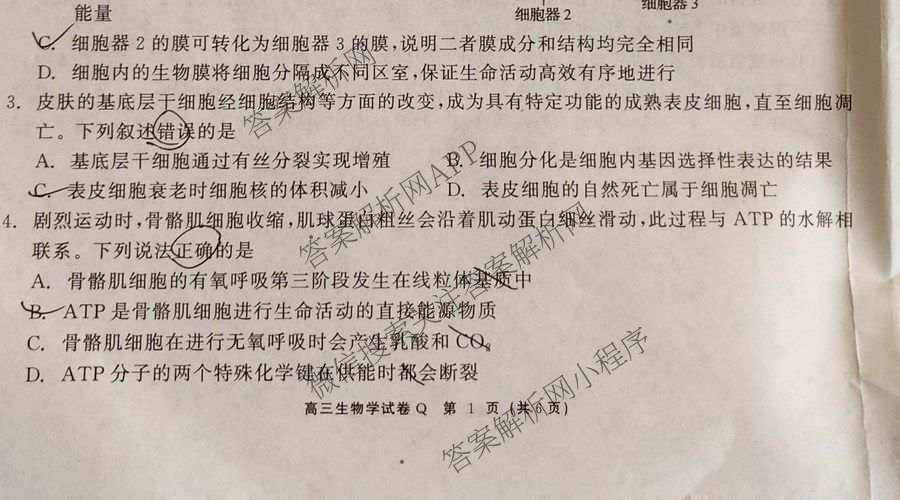 能量
细胞器2
细胞器3
C. 细胞器 2 的膜可转化为细胞器 3 的膜,说明二者膜成分和结构均完全相同
D. 细胞内的生物膜将细胞分隔成不同区室,保证生命活动高效有序地进行
3. 皮肤的基底层干细胞经细胞结构等方面的改变,成为具有特定功能的成熟表皮细胞,直至细胞凋
亡。下列叙述错误的是
A. 基底层干细胞通过有丝分裂实现增殖 B. 细胞分化是细胞内基因选择性表达的结果
C. 表皮细胞衰老时细胞核的体积减小 D. 表皮细胞的自然死亡属于细胞凋亡
4. 剧烈运动时,骨骼肌细胞收缩,肌球蛋白粗丝会沿着肌动蛋白细丝滑动,此过程与 ATP 的水解相
联系。下列说法正确的是
A. 骨骼肌细胞的有氧呼吸第三阶段发生在线粒体基质中
B. ATP 是骨骼肌细胞进行生命活动的直接能源物质
C. 骨骼肌细胞在进行无氧呼吸时会产生乳酸和 CO₂
D. ATP 分子的两个特殊化学键在供能时都会断裂
高三生物学试卷 Q 第 1 页 (共 6 页)
答案解析网
答案解析网APP
微信搜索关注答案解析网
答案解析网小程序